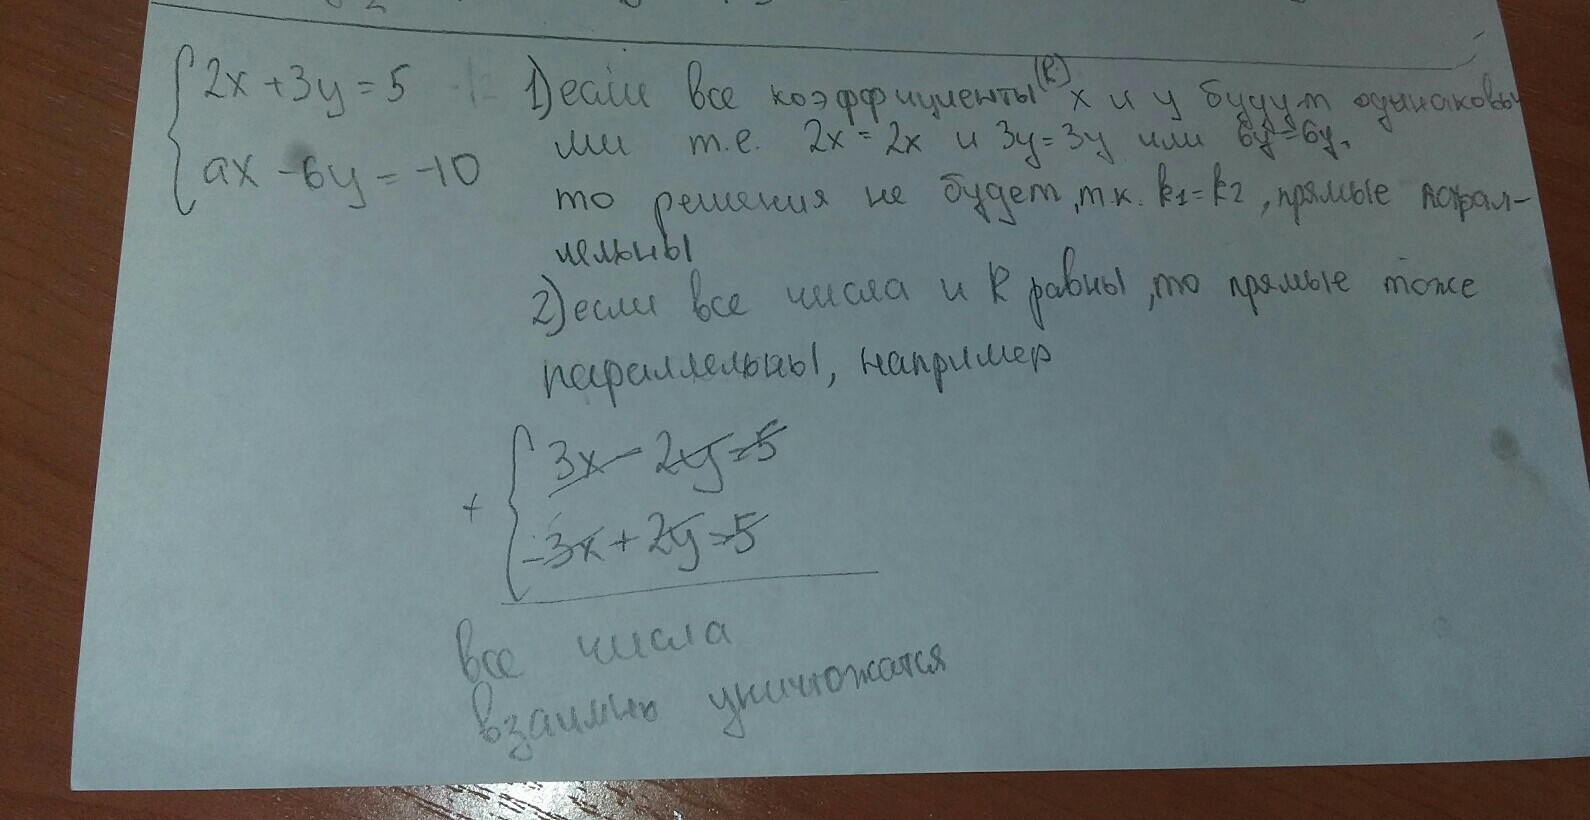 2x + 3y = 5
ax - 6y = -10
1) если все коэффициенты (k) x и y будут одинаковы
ми т.е. 2x = 2x и 3y = 3y или 6y = 6y,
то решения не будет, т.к. k1 = k2, прямые парал-
лельны
2) если все числа и k равны, то прямые тоже
параллельны, например
3x - 2y = 5
+
-3x + 2y = 5
все числа
взаимно уничтожатся